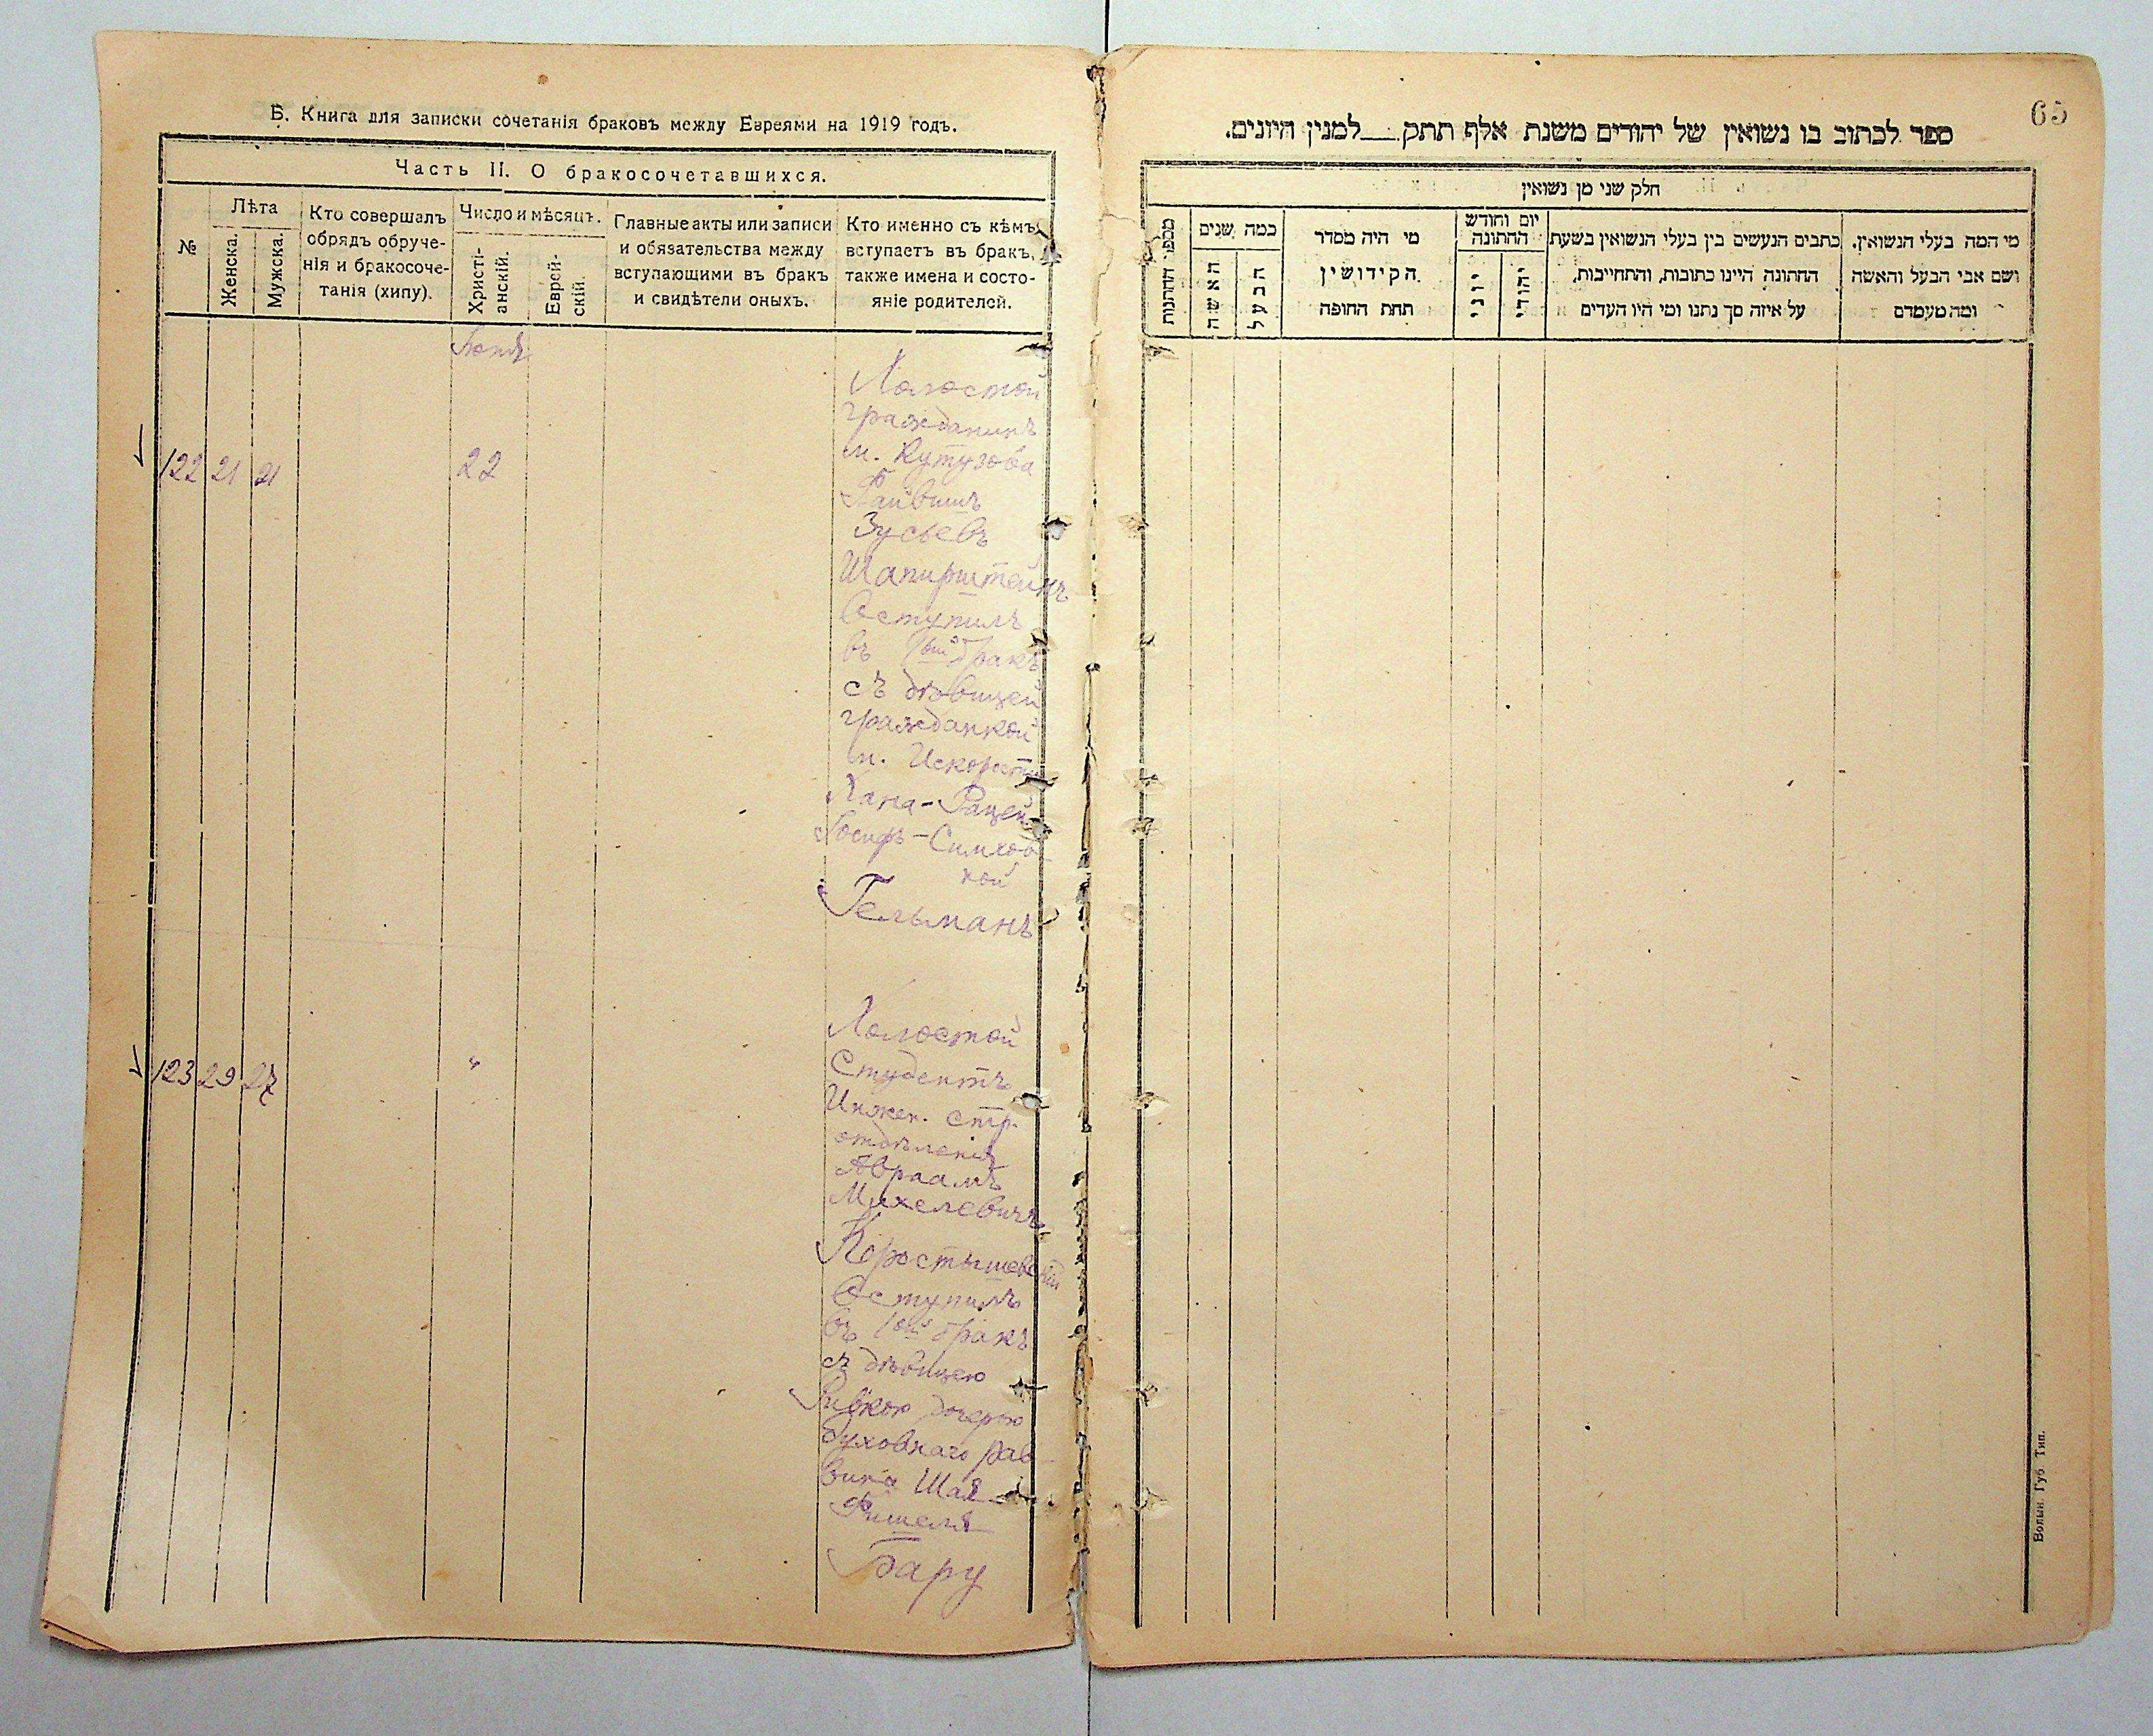 Б. Книга для записки сочетанія браковъ между Евреями на 1919 годъ.
Часть II. О бракосочетавшихся.
№
Лѣта
Женска.
Мужска.
Кто совершалъ
обрядъ обруче-
нія и бракосоче-
танія (хипу).
Число и мѣсяцъ.
Христі-
анскій.
Еврей-
скій.
Главные акты или записи
и обязательства между
вступающими въ бракъ
и свидѣтели оныхъ.
Кто именно съ кѣмъ
вступаетъ въ бракъ,
также имена и состо-
яніе родителей.
122 21 21 22
Холостой
гражданинъ
м. Кутузова
Файвишъ
Зусьевъ
Шапирштейнъ
Вступилъ
въ 1ый бракъ
съ дѣвицей
гражданкой
м. Искорость
Хана-Рацей
Іосифъ-Симхов
ной
Гельманъ
123 29 27 "
Холостой
Студентъ
Инжен. стр.
отдѣленія
Авраамъ
Михелевичъ
Коростышевскій
Вступилъ
въ 1ый бракъ
съ дѣвицею
Ривкою дочерью
духовнаго рав-
вина Шая-
Фишеля
Бару
65
ספר לכתוב בו נשואין של יהודים משנת אלף תתק__למנין היונים.
חלק שני מן נשואין
מספר החתנות
כמה שנים
האשה
הבעל
מי היה מסדר
הקידושין
תחת החופה
יום וחודש
החתונה
יוני
יהודי
כתבים הנעשים בין בעלי הנשואין בשעת
החתונה היינו כתובות, והתחייבות,
על איזה סך נתנו ומי היו העדים
מי המה בעלי הנשואין.
ושם אבי הבעל והאשה
ומה מעמדם
Волын. Губ Тип.